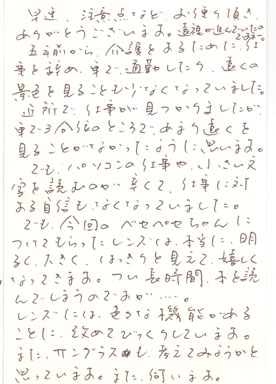 早速、注意点など、お便り頂き
ありがとうございます。遠視が進んでいたのですね。
五年前から、介護をするために、仕
事を辞め、車で通勤したり、遠くの
景色を見ることも少なくなっていました。
近所で、仕事が見つかりましたが、
車で3分位のところで、あまり遠くを
見ることがなかったように思います。
でも、パソコンの仕事や、小さい文
字を読むのが辛くて、仕事に対
する自信もなくなっていました。
でも、今回のペセペセちゃんに
つけてもらったレンズは、本当に、明
るく、大きく、はっきりと見えて、嬉しく
なってきます。つい長時間、本を読
んでしまうのですが‥‥。
レンズには、色々な機能がある
ことに、改めてびっくりしています。
また、サングラスも、考えてみようかと
思っています。また、伺います。